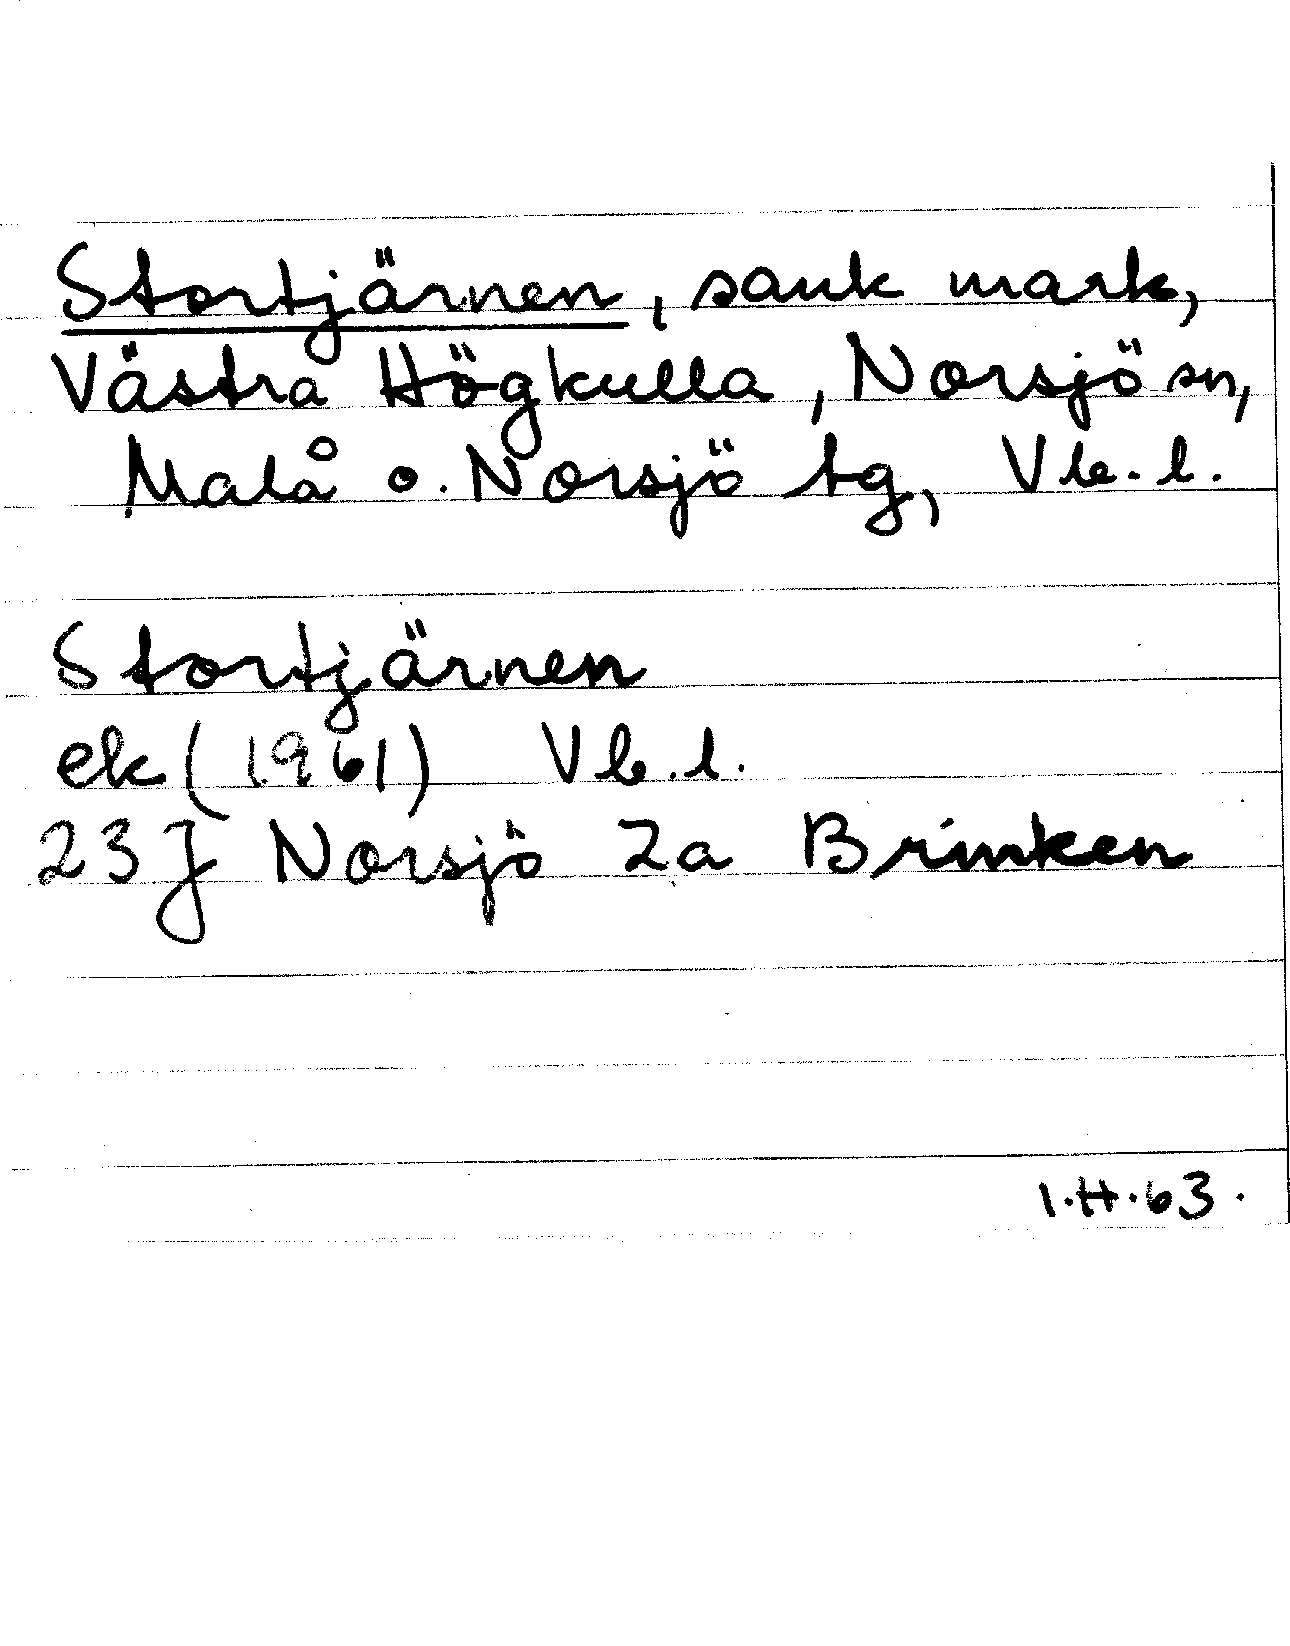 Stortjärnen, sank mark,
Västra Högkulla, Norsjö sn,
Malå o. Norsjö tg, Vb.l.
Stortjärnen
ek (1961) Vb.l.
23J Norsjö 2a Brinken
I.H.63.